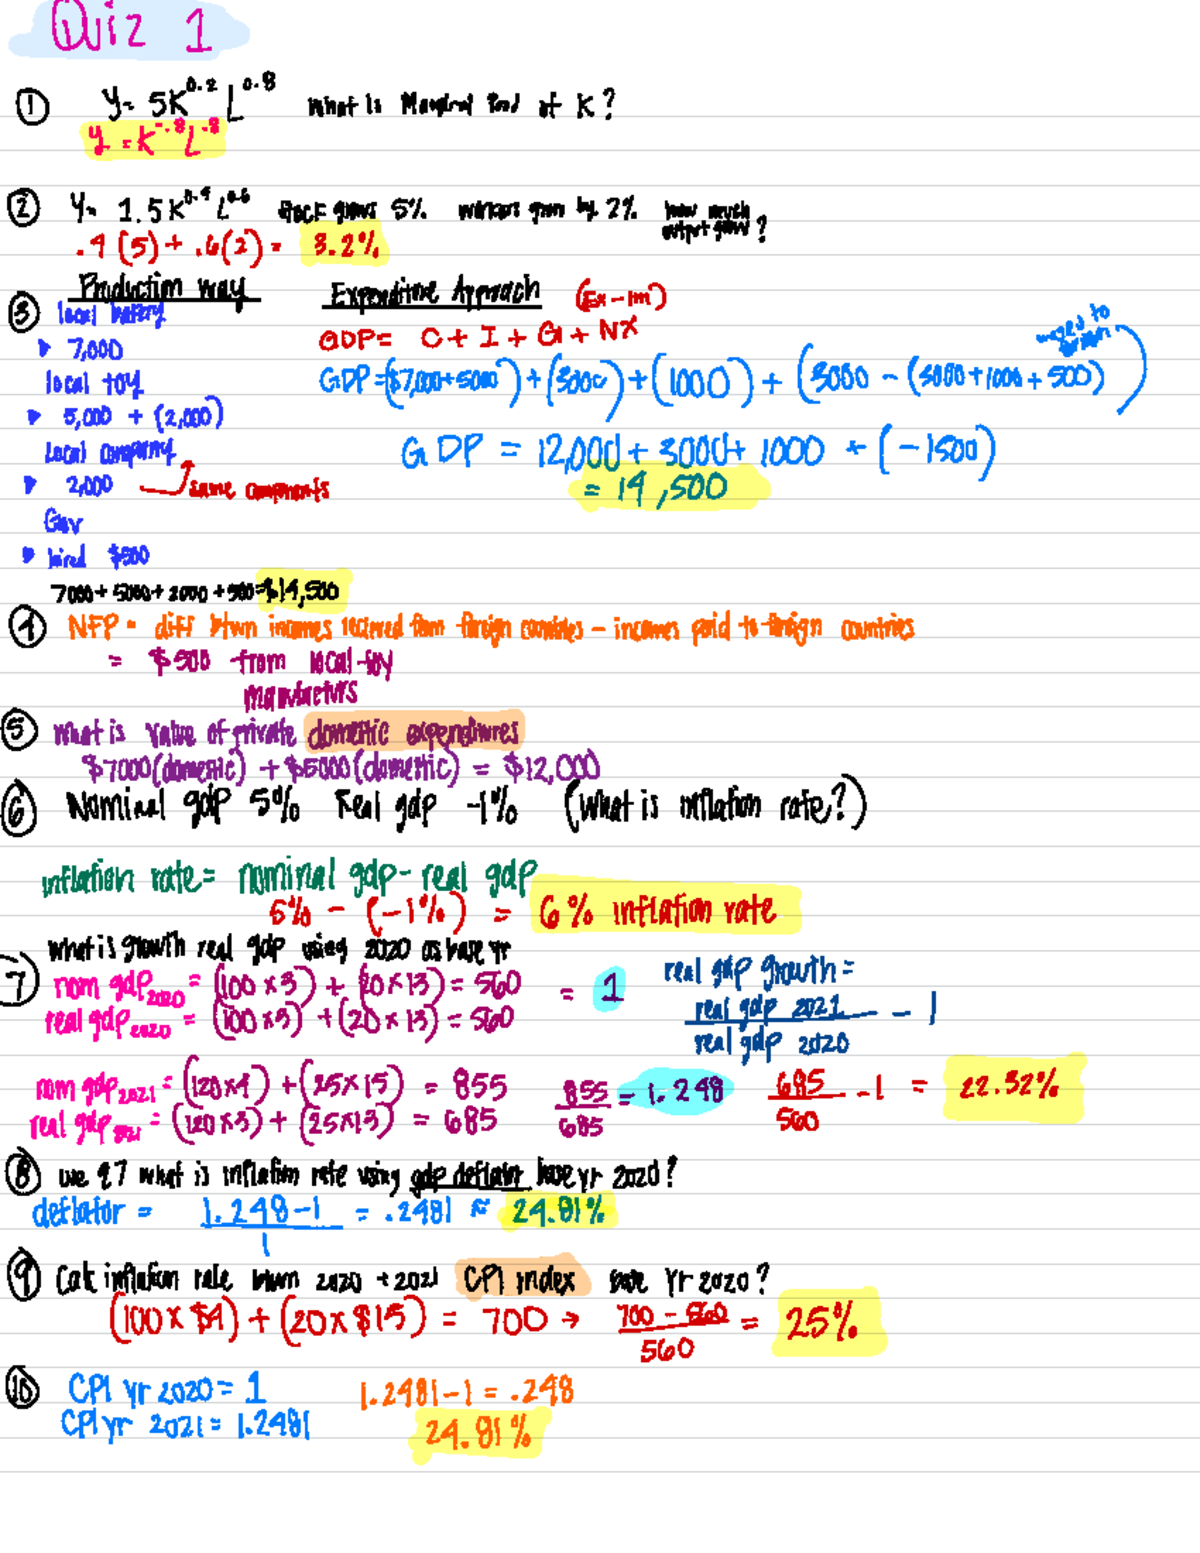 Quiz 1
① Y= 5K^0.2 L^0.8 What is Marginal Prod of K?
y = K^-.8 L^.8
② Y= 1.5K^0.4 L^0.6 grows 5% workers grow by 2% how much output grow?
.4(5) + .6(2) = 3.2%
Production way Expenditure Approach (Ex-Im)
③ local bakery
GDP = C + I + G + NX
7,000
wages to
local toy
GDP = ($7,000+5000) + (3000) + (1000) + (3000 - (3000+1000+500))
5,000 + (2,000)
local company
GDP = 12,000 + 3000 + 1000 + (-1500)
2,000 same components
= 14,500
Gov
hired $500
7000 + 5000 + 2000 + 500 = $14,500
④ NFP = diff btwn incomes recieved from foreign countries - incomes paid to foreign countries
= $500 from local toy
manufacturs
⑤ What is value of private domestic expenditures
$7000 (domestic) + $5000 (domestic) = $12,000
⑥ Nominal gdp 5% Real gdp -1% (What is inflation rate?)
inflation rate = nominal gdp - real gdp
5% - (-1%) = 6% inflation rate
What is growth real gdp using 2020 as base yr
⑦ nom gdp2020 = (100 x 3) + (20 x 13) = 560 = 1
real gdp2020 = (100 x 3) + (20 x 13) = 560
real gdp growth =
real gdp 2021 - 1
real gdp 2020
nom gdp2021 = (120x4) + (25x15) = 855
real gdp2021 = (120x3) + (25x13) = 685
855/685 = 1.248
685/560 - 1 = 22.32%
⑧ use q7 what is inflation rate using gdp deflator base yr 2020?
deflator = 1.248-1 = .2481 ≈ 24.81%
1
⑨ Calc inflation rate btwn 2020 + 2021 CPI index base Yr 2020?
(100 x $4) + (20 x $15) = 700 → 700 - 560 = 25%
560
⑩ CPI yr 2020 = 1 1.2481-1 = .248
CPI yr 2021 = 1.2481 24.81%